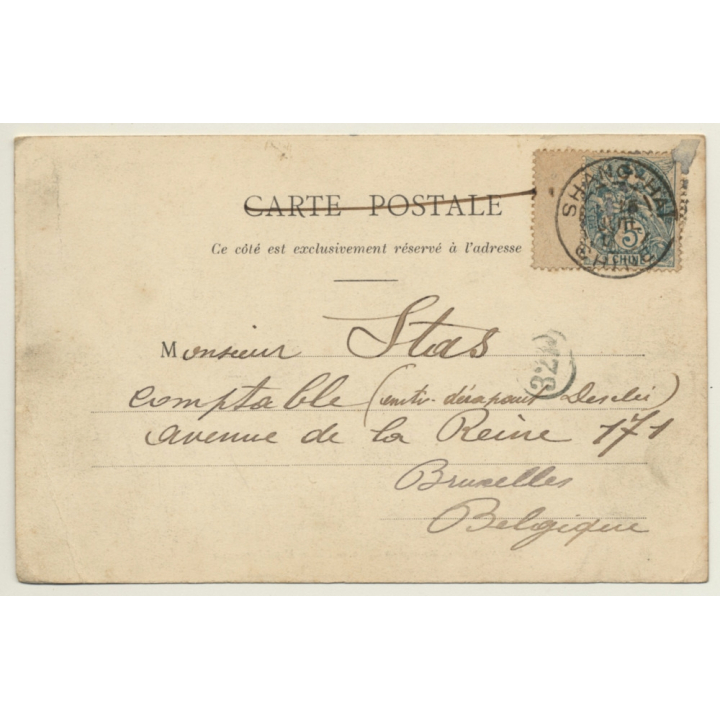 CARTE POSTALE
Ce côté est exclusivement réservé à l'adresse
SHANG-HAI
CHINE
5
CHINE
Monsieur Stas
32M
comptable (
avenue de la Reine 171
Bruxelles
Belgique